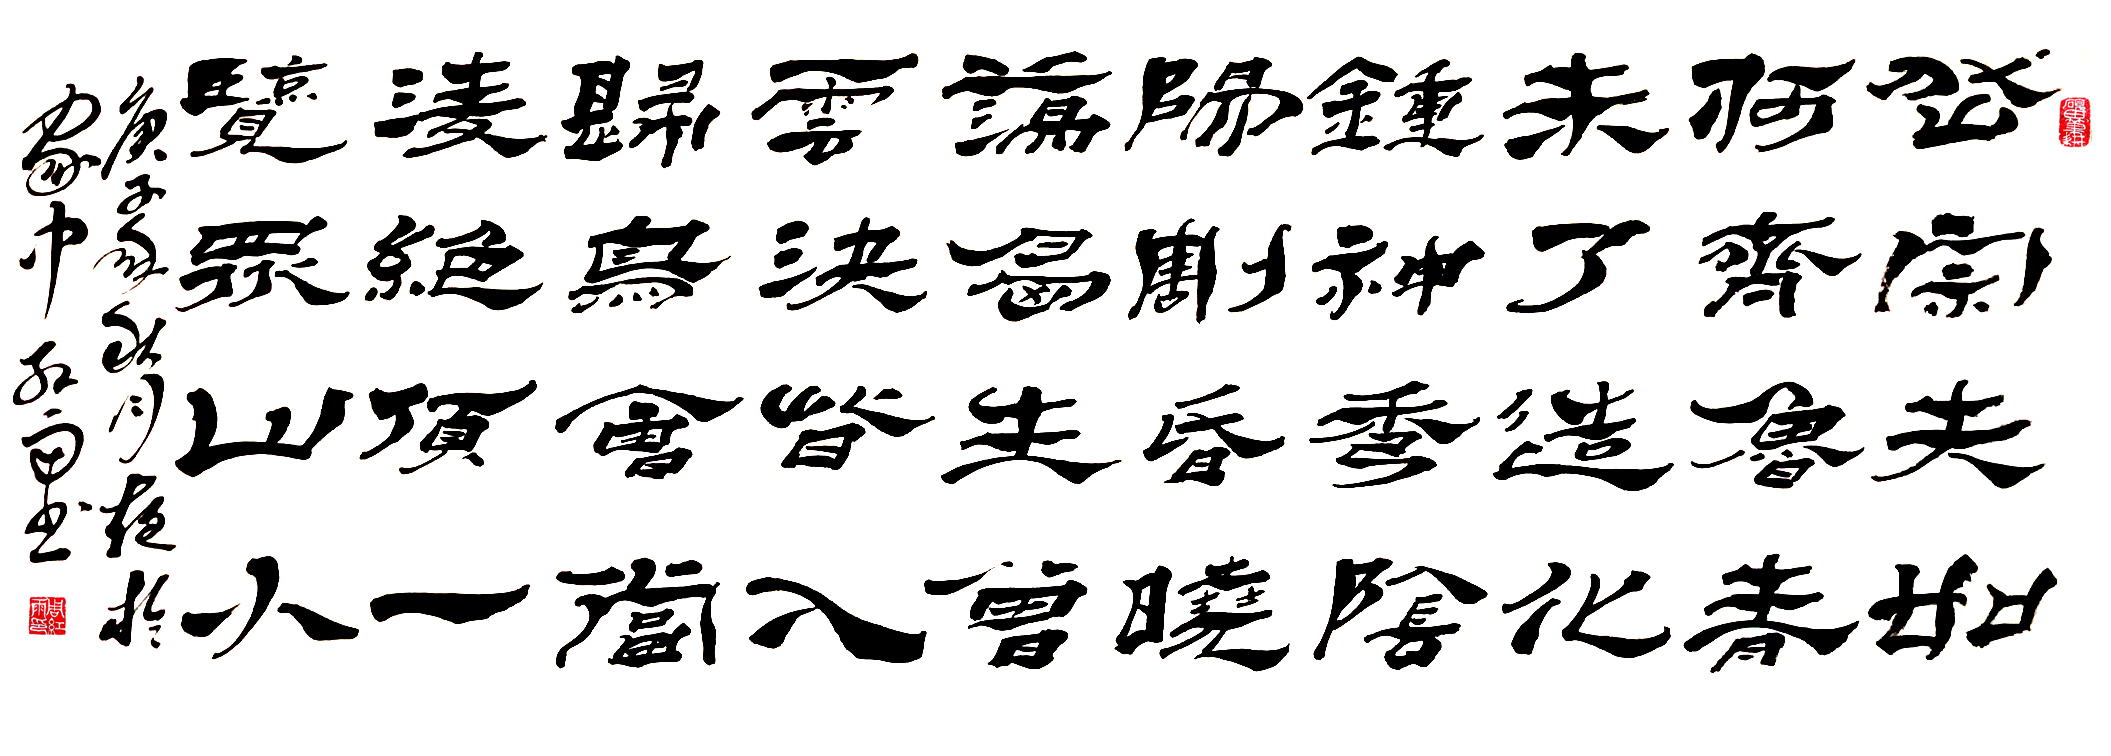 岱宗夫如
何齊魯青
未了造化
鍾神秀陰
陽割昏曉
蕩胸生曾
雲決眥入
歸鳥會當
淩絕頂一
覽眾山小
庚子秋月於
家中紅雨书